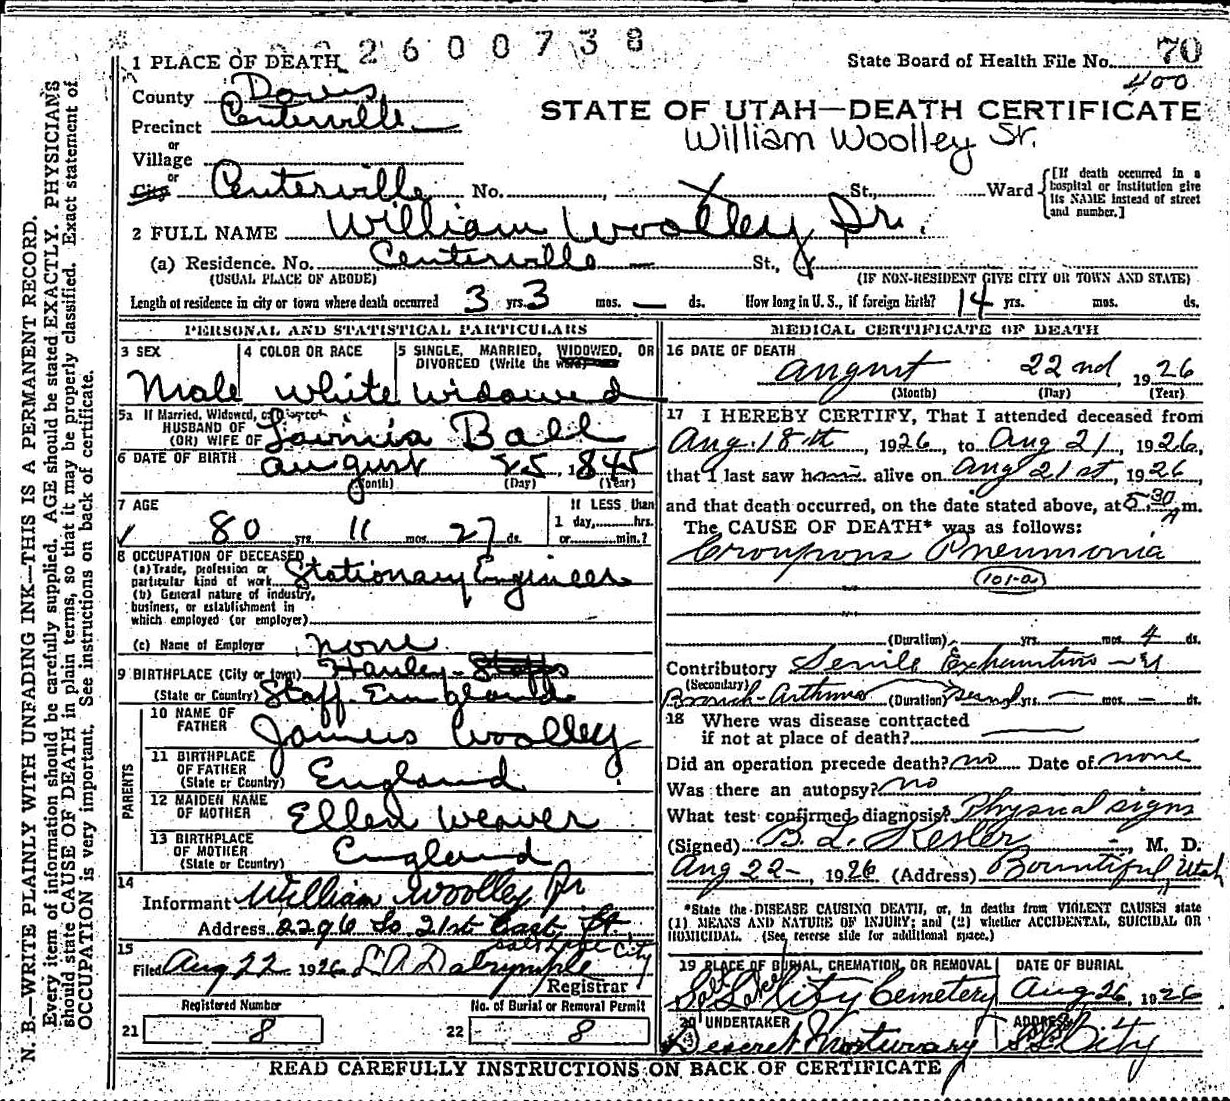 2600738
1 PLACE OF DEATH
State Board of Health File No. 70
400
County Davis
STATE OF UTAH—DEATH CERTIFICATE
Precinct Centerville
William Woolley Sr.
or
Village
or
City Centerville No. St., Ward
[If death occurred in a hospital or institution give its NAME instead of street and number.]
2 FULL NAME William Woolley Sr.
(a) Residence. No. Centerville St.,
(USUAL PLACE OF ABODE) (IF NON-RESIDENT GIVE CITY OR TOWN AND STATE)
Length of residence in city or town where death occurred 3 yrs. 3 mos. — ds. How long in U.S., if foreign birth? 14 yrs. mos. ds.
PERSONAL AND STATISTICAL PARTICULARS
3 SEX
Male
4 COLOR OR RACE
White
5 SINGLE, MARRIED, WIDOWED, OR
DIVORCED (Write the word)
Widowed
5a If Married, Widowed, or Divorced
HUSBAND OF
(OR) WIFE OF Lavinia Ball
6 DATE OF BIRTH August 25 1845
(Month) (Day) (Year)
7 AGE
80 yrs. 11 mos. 27 ds.
If LESS than
1 day, hrs.
or min.?
8 OCCUPATION OF DECEASED
(a) Trade, profession or
particular kind of work Stationary Engineer
(b) General nature of industry,
business, or establishment in
which employed (or employer)
(c) Name of Employer none
9 BIRTHPLACE (City or town) Hanley - Staffs
(State or Country) Staff. England
PARENTS
10 NAME OF
FATHER James Woolley
11 BIRTHPLACE
OF FATHER
(State or Country) England
12 MAIDEN NAME
OF MOTHER Ellen Weaver
13 BIRTHPLACE
OF MOTHER
(State or Country) England
14
Informant William Woolley Jr.
Address 2296 So 21st East St.
Salt Lake City
15
Filed Aug 22 1926 L A Dalrymple
Registrar
Registered Number
21 8
No. of Burial or Removal Permit
22 8
MEDICAL CERTIFICATE OF DEATH
16 DATE OF DEATH
August 22nd, 1926
(Month) (Day) (Year)
17 I HEREBY CERTIFY, That I attended deceased from
Aug. 18th, 1926, to Aug 21, 1926,
that I last saw him alive on Aug 21st, 1926,
and that death occurred, on the date stated above, at 5:30 A m.
The CAUSE OF DEATH* was as follows:
Croupous Pneumonia
101-a
(Duration) yrs. mos. 4 ds.
Contributory Senile Exhaustion
(Secondary)
Bronch-Asthma (Duration) yrs. — mos. — ds.
18 Where was disease contracted
if not at place of death?
Did an operation precede death? no Date of none
Was there an autopsy? no
What test confirmed diagnosis? Physical signs
(Signed) B. L. Kesler, M. D.
Aug 22-, 1926 (Address) Bountiful Utah
*State the DISEASE CAUSING DEATH, or, in deaths from VIOLENT CAUSES state
(1) MEANS AND NATURE OF INJURY; and (2) whether ACCIDENTAL, SUICIDAL OR
HOMICIDAL. (See reverse side for additional space.)
19 PLACE OF BURIAL, CREMATION, OR REMOVAL
Salt Lake City Cemetery
DATE OF BURIAL
Aug 26, 1926
20 UNDERTAKER
Deseret Mortuary
ADDRESS
S L City
READ CAREFULLY INSTRUCTIONS ON BACK OF CERTIFICATE
N. B.—WRITE PLAINLY WITH UNFADING INK—THIS IS A PERMANENT RECORD.
Every item of information should be carefully supplied. AGE should be stated EXACTLY. PHYSICIANS
should state CAUSE OF DEATH in plain terms, so that it may be properly classified. Exact statement of
OCCUPATION is very important. See instructions on back of certificate.